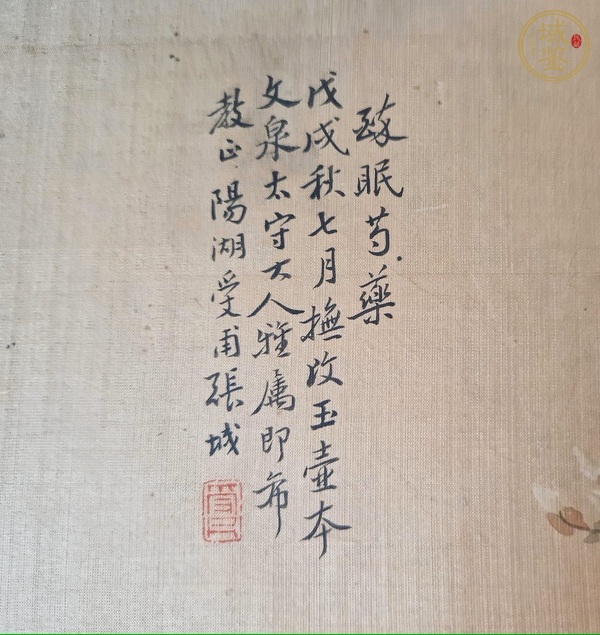 醉眠芍藥
戊戌秋七月撫改玉壺本
文泉太守大人雅屬即希
教正陽湖受甫張城